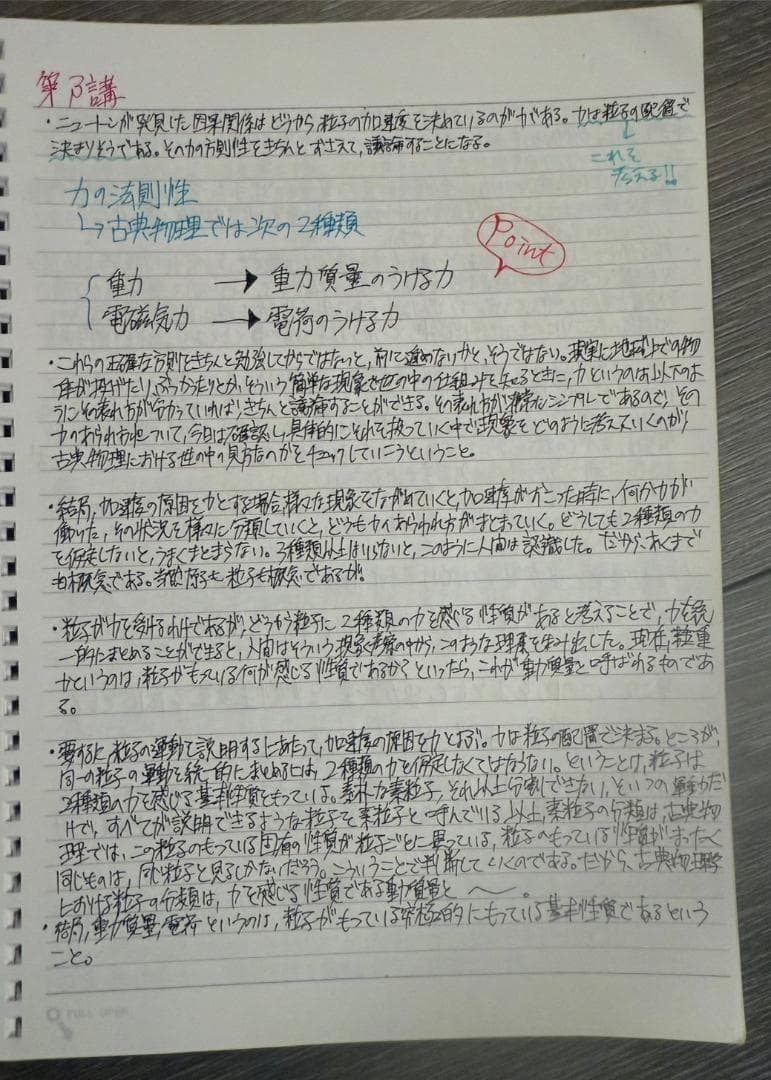 第β講
・ニュートンが発見した因果関係はどうやら粒子の加速度を決めているのが力である。力は粒子の配置で
決まりそうである。その力の法則性をきちんとおさえて、議論することになる。
これを
考える!!
力の法則性
↳古典物理では次の2種類
Point
重力 → 重力質量のうける力
電磁気力 → 電荷のうける力
・これらの正確な法則をきちんと勉強してからではないと、前に進めないかと、そうではない。現実に地球上での物
体が投げたり、ぶつかったりとか、そういう簡単な現象を世の中の仕組みを知るときに、力というのは以下のよ
うにその表れ方が分かっていれば、きちんと議論することができる。その表れ方が非常にシンプルであるので、その
力のあらわれ方について、今日は確認し、具体的にそれを扱っていく中で現象をどのように考えていくのかが、
古典物理における世の中の見方なのかをチェックしていこうということ。
・結局、加速度の原因を力とする場合、様々な現象をながめていくと、加速度がおこった時に、何分力が
働いた、その状況を様々に分類していくと、どうも力のあらわれ方がまとまっていく。どうしても2種類の力
を仮定しないと、うまくまとまらない。3種類以上はいらないと、このように人間は認識した。だから、あくまで
も概念である。原子も粒子も概念であるが。
・粒子が力を受けるわけであるが、どうやら粒子に2種類の力を感じる性質があると考えることで、力を統
一的にまとめることができると、人間はそういう現象考察の中から、このような理屈を生み出した。現在、重
力というのは、粒子がもっている何が感じる性質であるか?といったら、これが重力質量と呼ばれるものであ
る。
・要するに、粒子の運動を説明するにあたって、加速度の原因を力とよぶ。力は粒子の配置で決まる。ところが、
同一の粒子の運動を統一的にまとめるには、2種類の力を仮定しなくてはならない。ということは、粒子は
2種類の力を感じる基本性質をもっている。素朴な素粒子、それ以上分割できない、といつの運動がだ
けで、すべてが説明できるような粒子を素粒子と呼んでいる以上、素粒子の分類は、古典物
理では、この粒子のもっている固有の性質が粒子ごとに異っている、粒子のもっている性質がまったく
同じものは、同じ粒子と見るしかないだろう。こういうことで判断していくのである。だから、古典物理学
における粒子の分類は、力を感じる性質である重力質量と 〜。
・結局、重力質量、電荷というのは、粒子がもっている究極的にもっている基本性質であるという
こと。
PULL OPEN